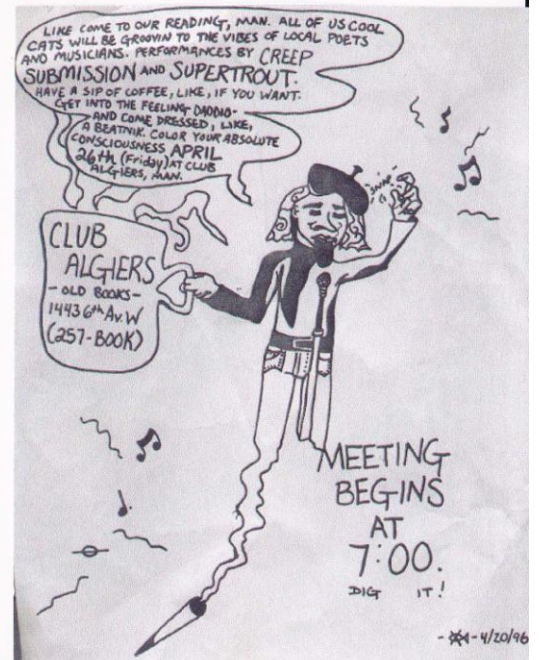 LIKE COME TO OUR READING, MAN. ALL OF US COOL
CATS WILL BE GROOVIN TO THE VIBES OF LOCAL POETS
AND MUSICIANS. PERFORMANCES BY CREEP
SUBMISSION AND SUPERTROUT.
HAVE A SIP OF COFFEE, LIKE, IF YOU WANT.
GET INTO THE FEELING DADDIO-
AND COME DRESSED, LIKE,
A BEATNIK. COLOR YOUR ABSOLUTE
CONSCIOUSNESS APRIL
26th (Friday) AT CLUB
ALGIERS, MAN.
SNAP
CLUB
ALGIERS
- OLD BOOKS -
1443 6th Av. W
(257-BOOK)
MEETING
BEGINS
AT
7:00.
DIG IT!
4/20/96